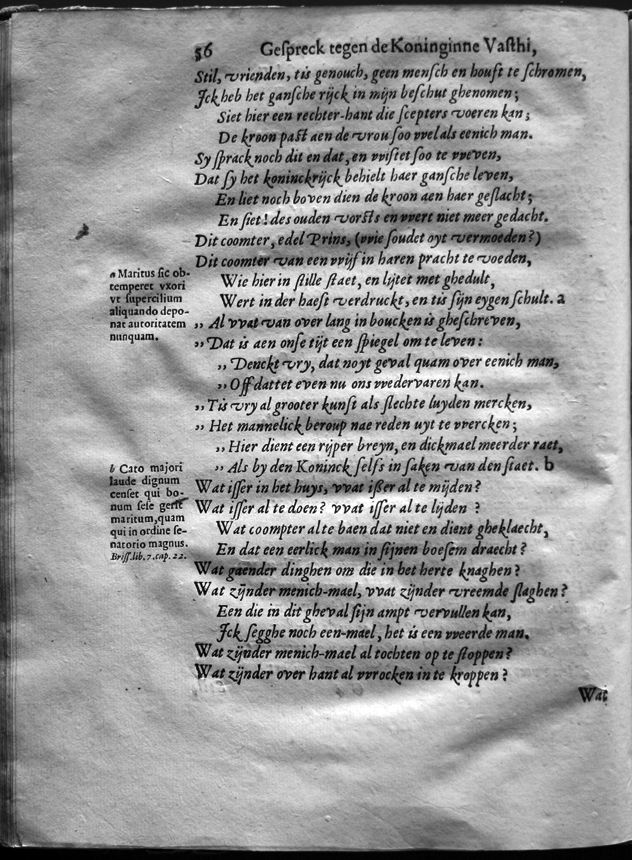 56 Geſpreck tegen de Koninginne Vaſthi,
Stil, vrienden, tis genouch, geen menſch en houft te ſchromen,
Jck heb het ganſche rijck in mijn beſchut ghenomen;
Siet hier een rechter-hant die ſcepters voeren kan;
De kroon paſt aen de vrou ſoo wel als eenich man.
Sy ſprack noch dit en dat, en wiſtet ſoo te weven,
Dat ſy het koninckrijck behielt haer ganſche leven,
En liet noch boven dien de kroon aen haer geſlacht;
En ſiet! des ouden vorſts en wert niet meer gedacht.
Dit coomter, edel Prins, (wie ſoudet oyt vermoeden?)
Dit coomter van een wijf in haren pracht te voeden,
Wie hier in ſtille ſtaet, en lijtet met ghedult,
Wert in der haeſt verdruckt, en tis ſijn eygen ſchult. a
„ Al wat van over lang in boucken is gheſchreven,
„ Dat is aen onſe tijt een ſpiegel om te leven:
„ Denckt vry, dat noyt geval quam over eenich man,
„ Off dattet even nu ons wedervaren kan.
„ Tis vry al grooter kunſt als ſlechte luyden mercken,
„ Het mannelick beroup nae reden uyt te wercken;
„ Hier dient een rijper breyn, en dickmael meerder raet,
„ Als by den Koninck ſelfs in ſaken van den ſtaet. b
Wat iſſer in het huys, wat iſſer al te mijden?
Wat iſſer al te doen? wat iſſer al te lijden?
Wat coompter al te baen dat niet en dient gheklaecht,
En dat een eerlick man in ſijnen boeſem draecht?
Wat gaender dinghen om die in het herte knaghen?
Wat zijnder menich-mael, wat zijnder vreemde ſlaghen?
Een die in dit gheval ſijn ampt vervullen kan,
Jck ſegghe noch een-mael, het is een weerde man.
Wat zijnder menich-mael al tochten op te ſtoppen?
Wat zijnder over hant al wrocken in te kroppen?
Wat
a Maritus ſic ob-
temperet vxori
vt ſupercilium
aliquando depo-
nat autoritatem
nunquam.
b Cato majori
laude dignum
cenſet qui bo-
num ſeſe gerit
maritum, quam
qui in ordine ſe-
natorio magnus.
Briſſ. lib. 7. cap. 22.